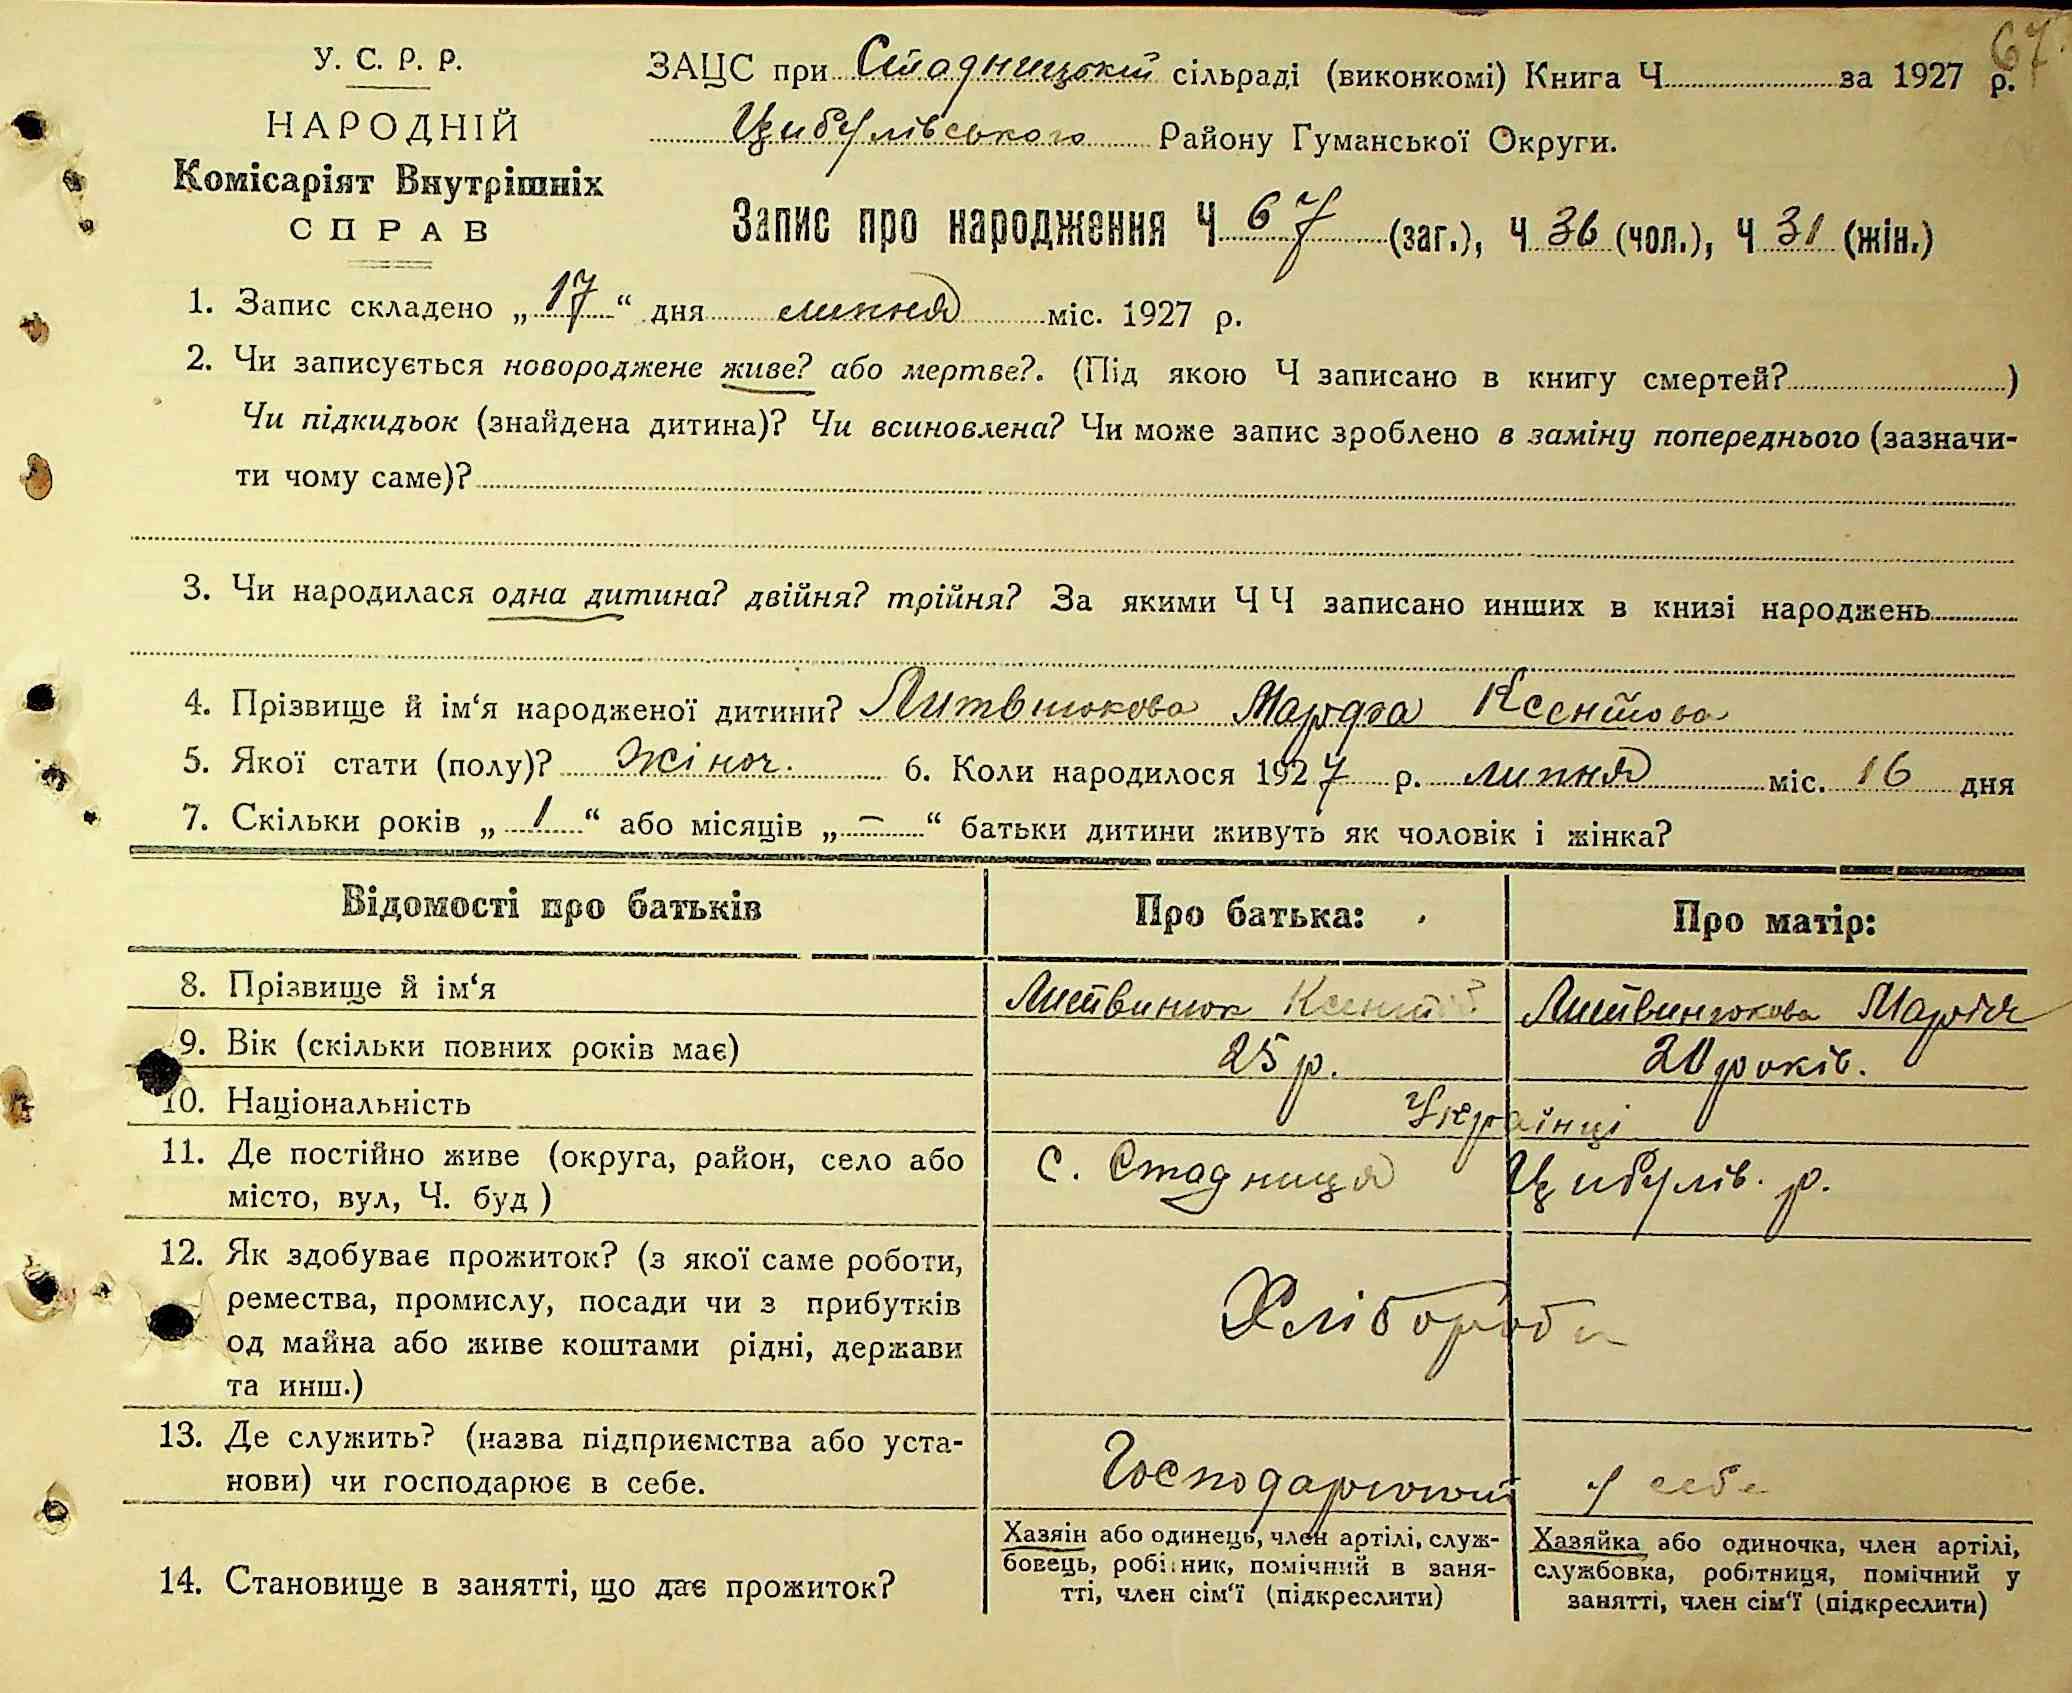 67
У. С. Р. Р.
НАРОДНІЙ
Комісаріят Внутрішніх
СПРАВ
ЗАЦС при Стадницькій сільраді (виконкомі) Книга Ч за 1927 р.
Цибулівського Району Гуманської Округи.
Запис про народження Ч 67 (заг.), Ч 36 (чол.), Ч 31 (жін.)
1. Запис складено „17“ дня липня міс. 1927 р.
2. Чи записується новороджене живе? або мертве?. (Під якою Ч записано в книгу смертей? )
Чи підкидьок (знайдена дитина)? Чи всиновлена? Чи може запис зроблено в заміну попереднього (зазначи-
ти чому саме)?
3. Чи народилася одна дитина? двійня? трійня? За якими Ч Ч записано инших в книзі народжень
4. Прізвище й ім‘я народженої дитини? Литвинюкова
5. Якої стати (полу)? Жіноч. 6. Коли народилося 1927 р. липня міс. 16 дня
7. Скільки років „1“ або місяців „—“ батьки дитини живуть як чоловік і жінка?
Відомості про батьків Про батька: Про матір:
8. Прізвище й ім‘я Литвинюк Литвинюкова Марія
9. Вік (скільки повних років має) 25 р. 20 років.
10. Національність Українці
11. Де постійно живе (округа, район, село або
місто, вул, Ч. буд ) с. Стадниця Цибулів. р.
12. Як здобуває прожиток? (з якої саме роботи,
ремества, промислу, посади чи з прибутків
од майна або живе коштами рідні, держави
та инш.) Хлібороби
13. Де служить? (назва підприємства або уста-
нови) чи господарює в себе. у себе
14. Становище в занятті, що дає прожиток?
Хазяін або одинець, член артілі, служ-
бовець, робітник, помічний в заня-
тті, член сім‘ї (підкреслити)
Хазяйка або одиночка, член артілі,
службовка, робітниця, помічний у
занятті, член сім‘ї (підкреслити)